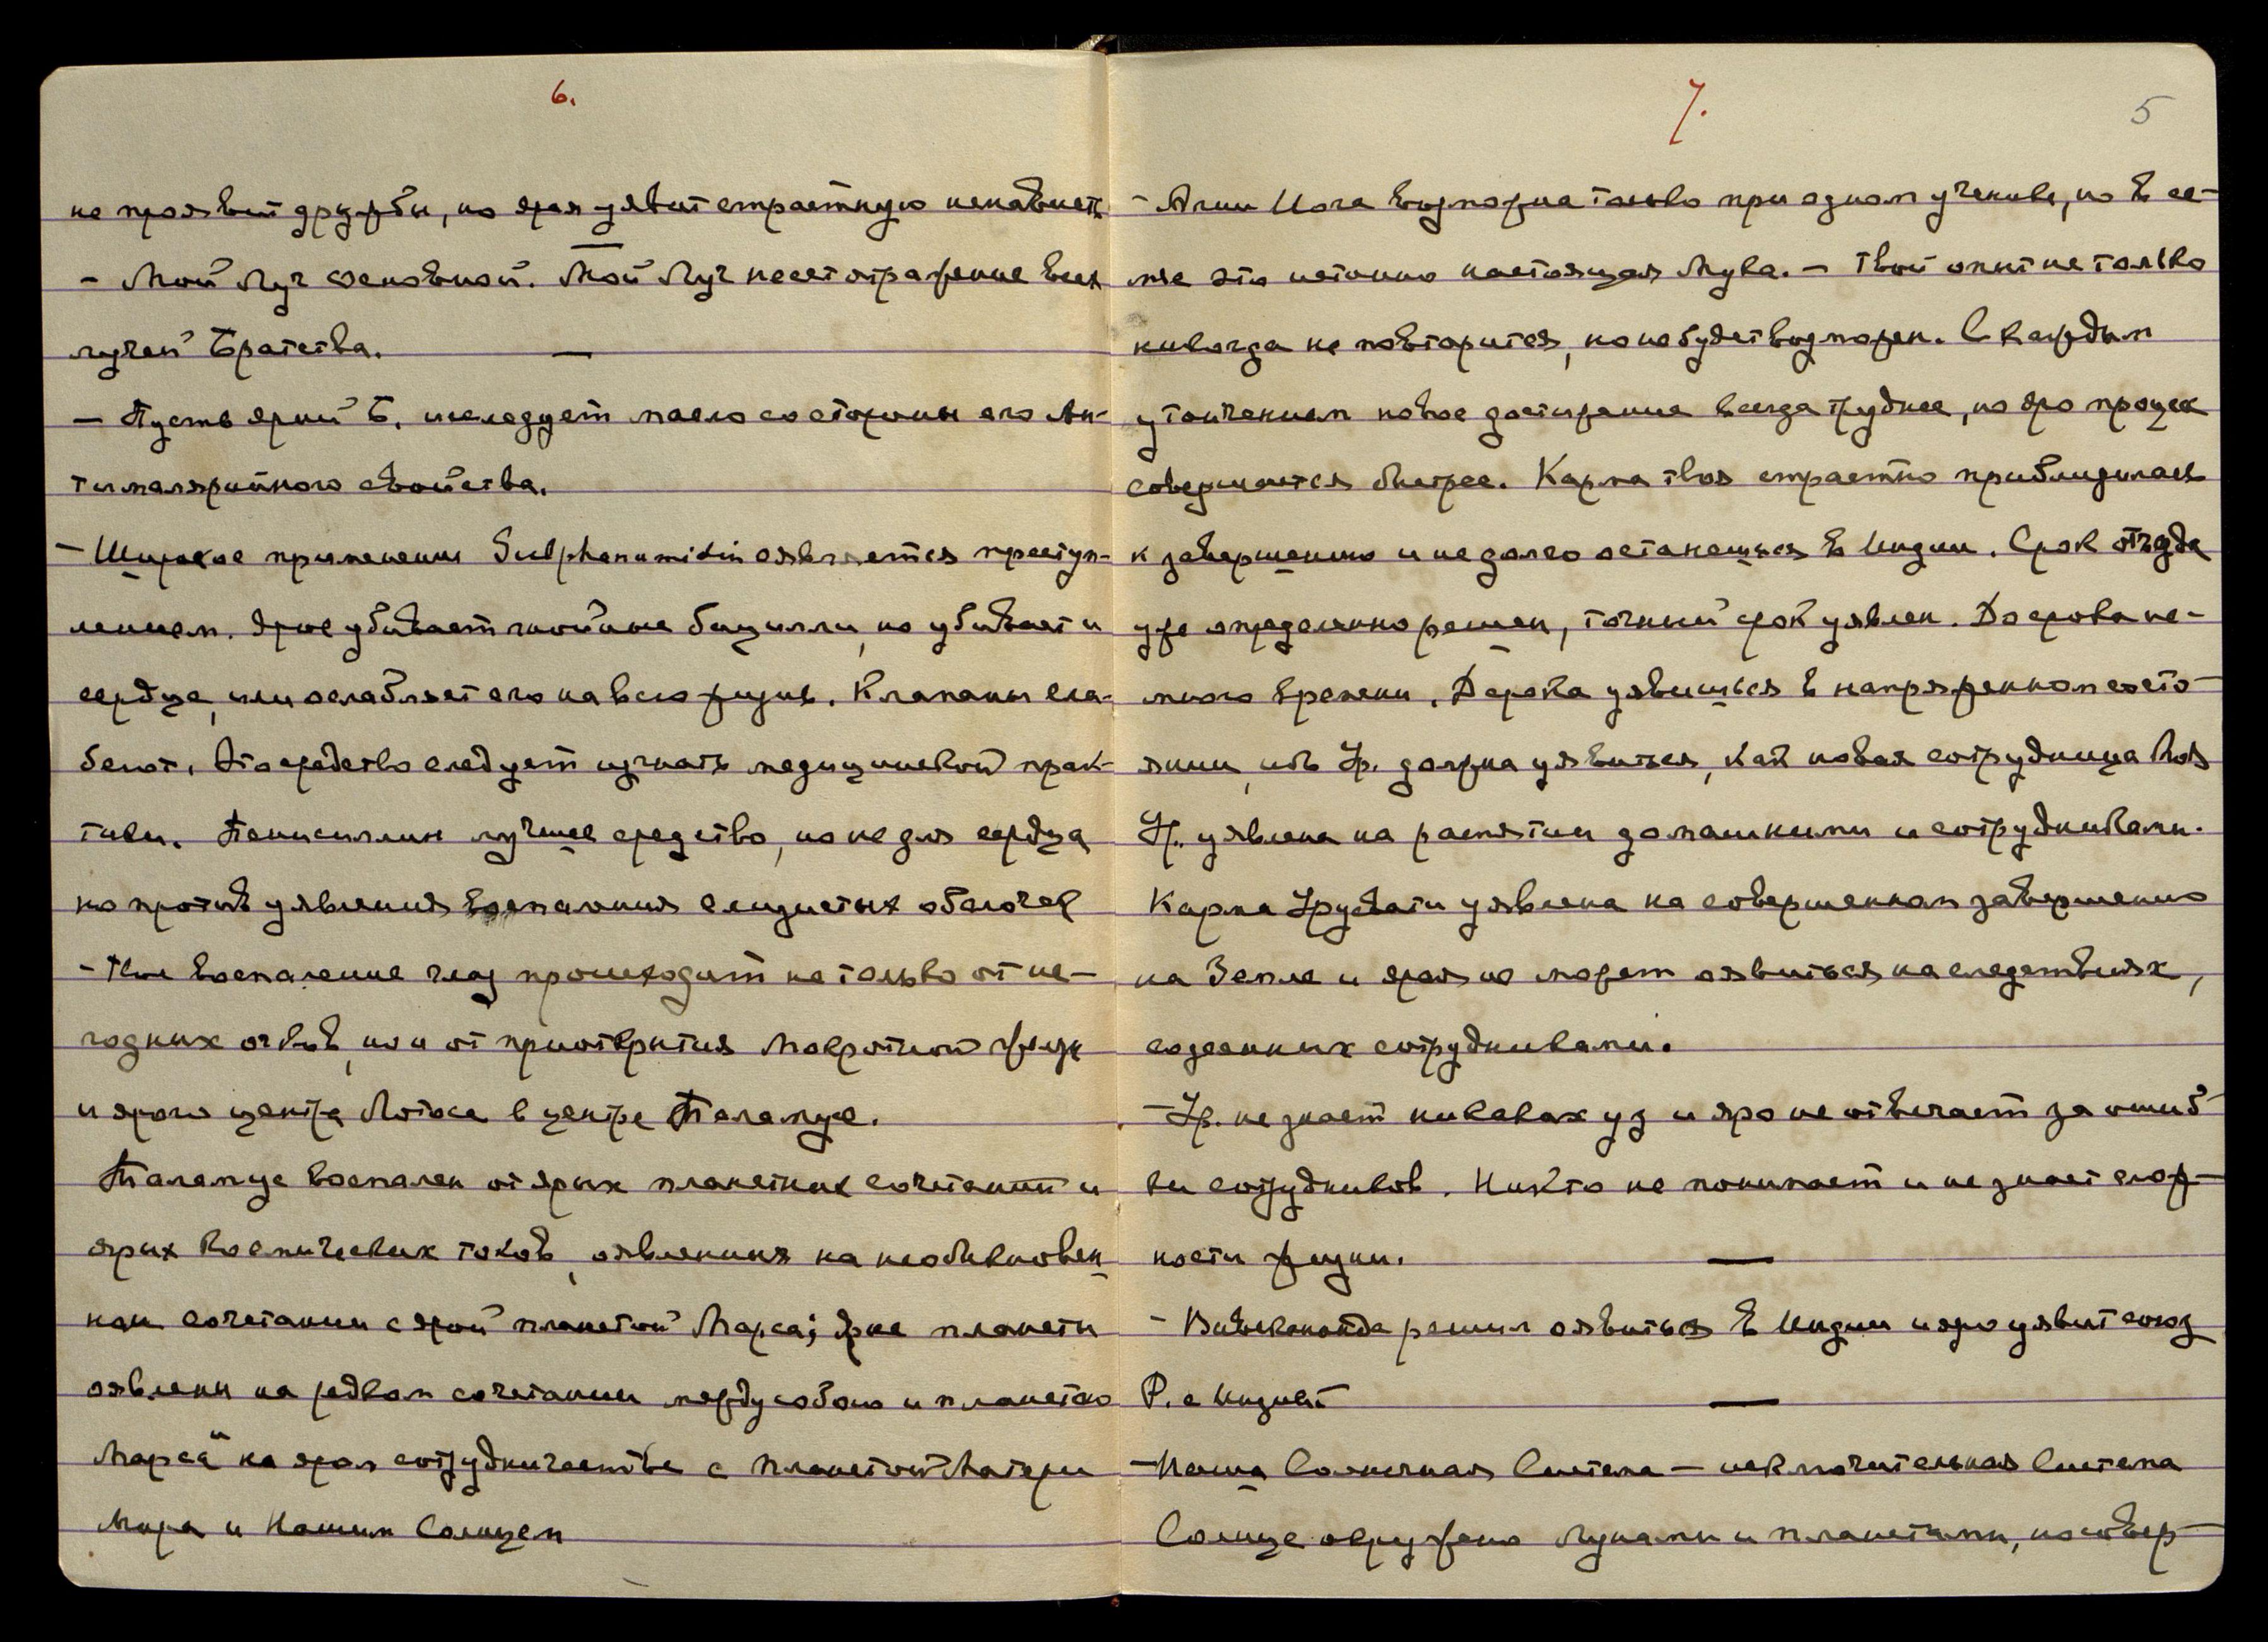 6.
не проявит дружбы, но ярая уявит страстную ненависть
- Мой Луч основной. Мой Луч несет отражение всех
лучей Братства.
- Пусть ярый Б. исследует масло со стороны его Ан-
тималярийного свойства.
- Широкое применение Sulphanamidin оявляется преступ-
лением. Ярое убивает гнойные бациллы, но убивает и
сердце, или ослабляет его на всю жизнь. Клапаны сла-
беют. Это средство следует изгнать медицинской прак-
тики. Пенисиллин лучшее средство, но не для сердца
но против уявления воспаления слизистых оболочек
- Твое воспаление глаз происходит не только от не-
годных очков, но и от приоткрытия Мокротной железы
и ярого центра Лотоса в центре Таламуса.
Таламус воспален от ярых планетных сочетаний и
ярых космических токов, оявления на необыкновен-
ном сочетании с ярой планетой Марса; Ярые планеты
оявлены на редком сочетании между собою и планетою
Марса и на яром сотрудничестве с планетой Матери
Мира и Нашим Солнцем
7.
5
- Агни Йога возможна только при одном ученике, но в се-
мье это истинно настоящая Мука. - Твой опыт не только
никогда не повторится, но не будет возможен. С каждым
утончением новое достижение всегда труднее, но яро процесс
совершается быстрее. Карма твоя страстно приблизилась
к завершению и недолго останешься в Индии. Срок отъезда
уже определенно решен, точный срок уявлен. До срока не-
много времени. Держка уявишься в напряженном состо-
янии, ибо Ур. должна уявиться, как новая сотрудница Моя
Ур. уявлена на распятии домашними и сотрудниками.
Карма Урусвати уявлена на совершенном завершении
на Земле и ярая не может оявиться на следствиях,
содеянных сотрудниками.
- Ур. не знает никаких уз и яро не отвечает за ошиб-
ки сотрудников. Никто не понимает и не знает слож-
ности жизни.
- Вивекананда решил оявиться в Индии и яро уявит союз
Р. с Индией
- Наша Солнечная Система - исключительная Система
Солнце окружено Лунами и планетами, но совер-